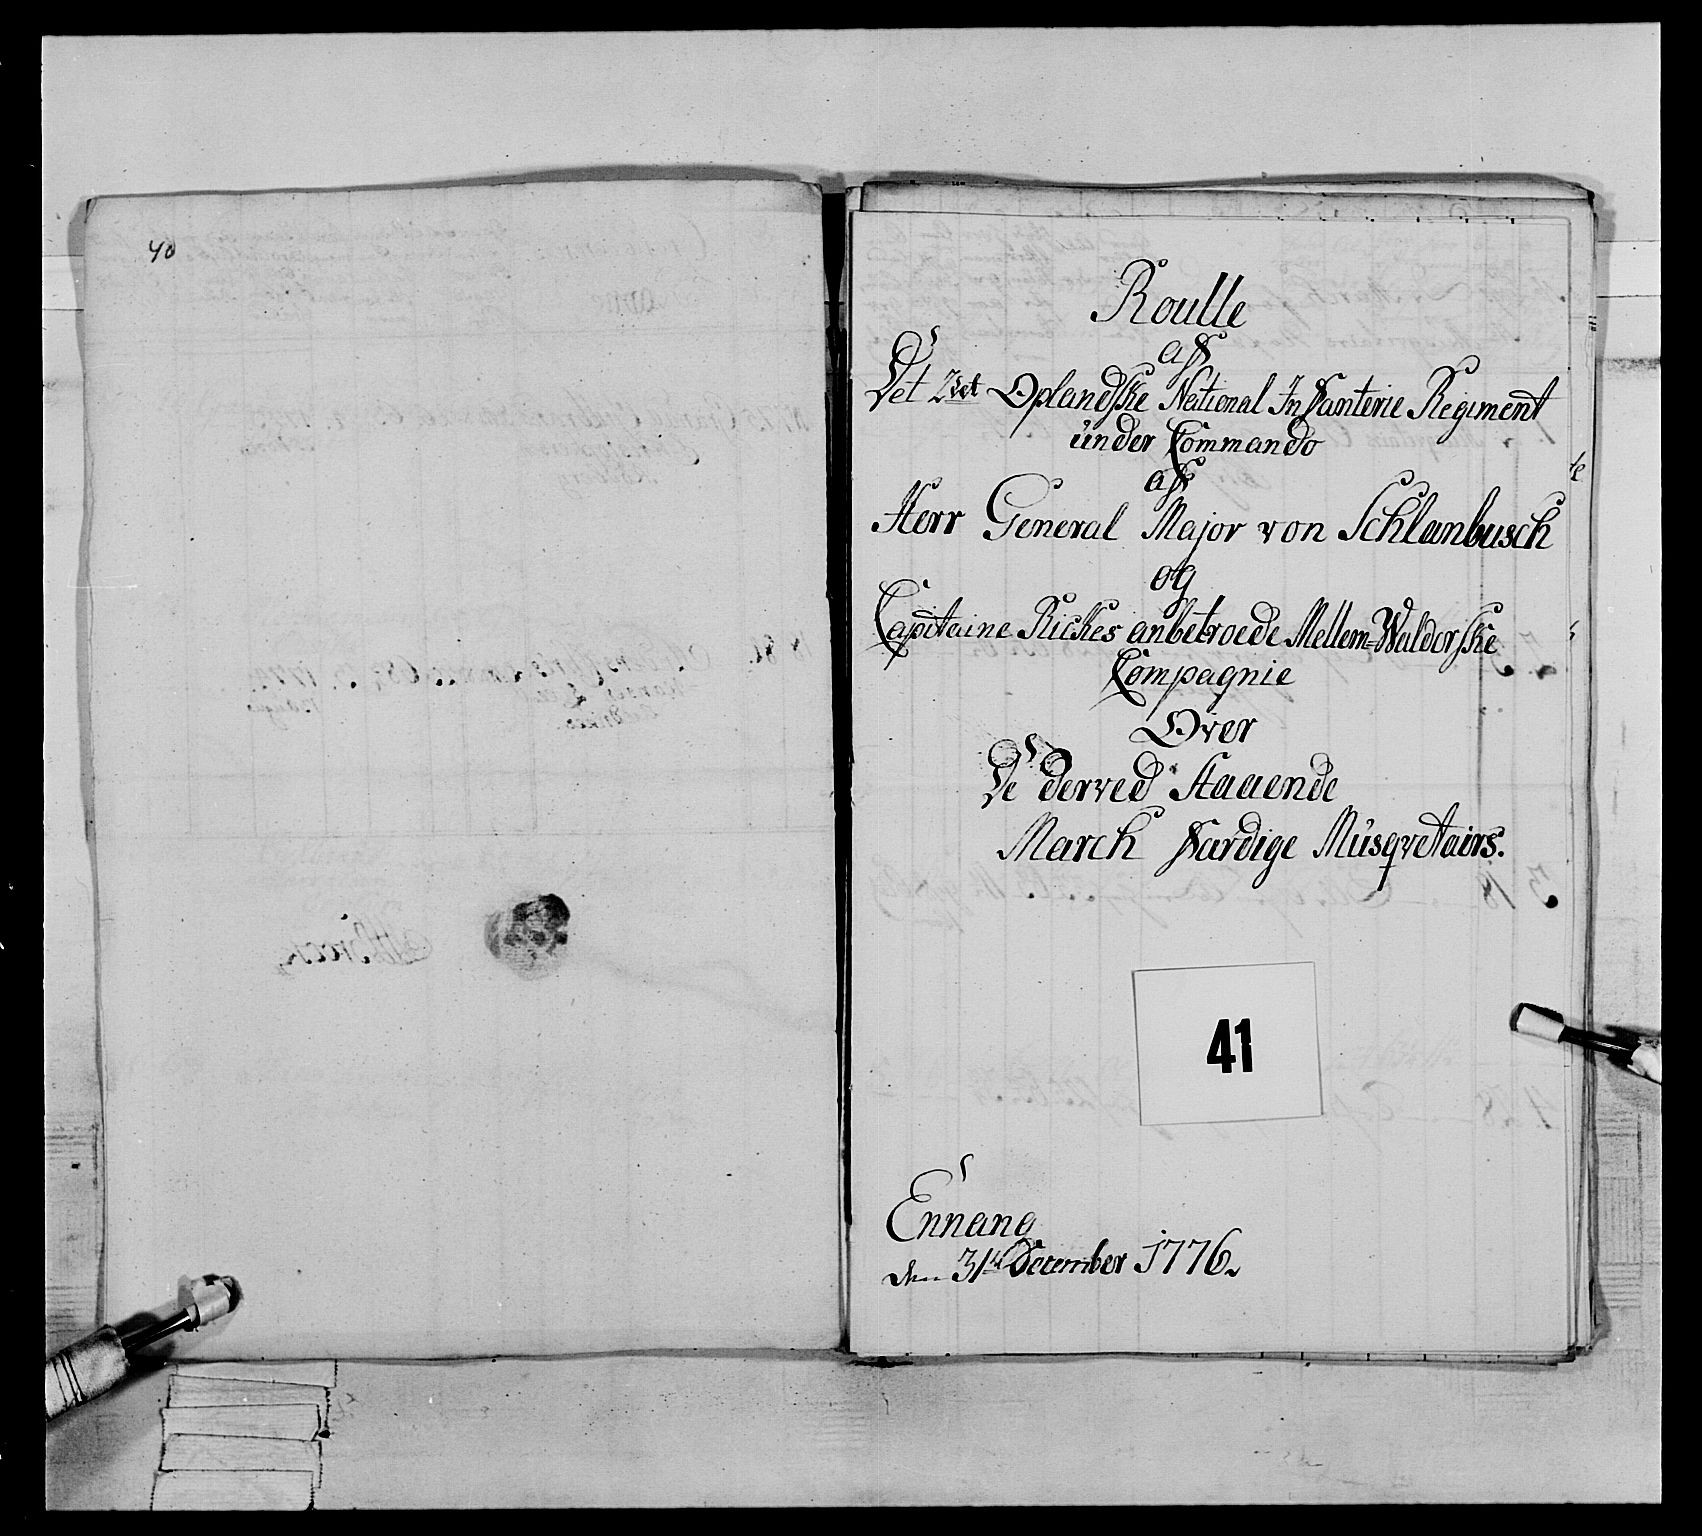 40
Roulle
aff
Det 2det Oplandske National Infanterie Regiment
under Commando
aff
Herr General Major von Schlanbusch
og
Capitaine Rickes anbetroede Mellem-Waldorske
Compagnie
Over
De derved staaende
March färdige Müsqvetairs.
41
Ennang
den 31te December 1776.